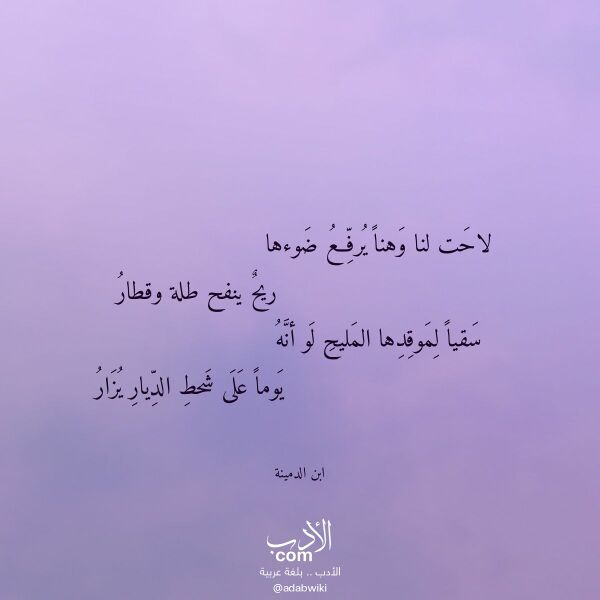 لاحَت لنا وَهناً يُرفِّعُ ضَوءها
ريحٌ ينفح طلة وقطارُ
سَقياً لِمَوقِدِها المَليحِ لَو أنَّهُ
يَوماً عَلَى شَحطِ الدِّيارِ يُزَارُ
ابن الدمينة
الأدب
.com
الأدب .. بلغة عربية
@adabwiki